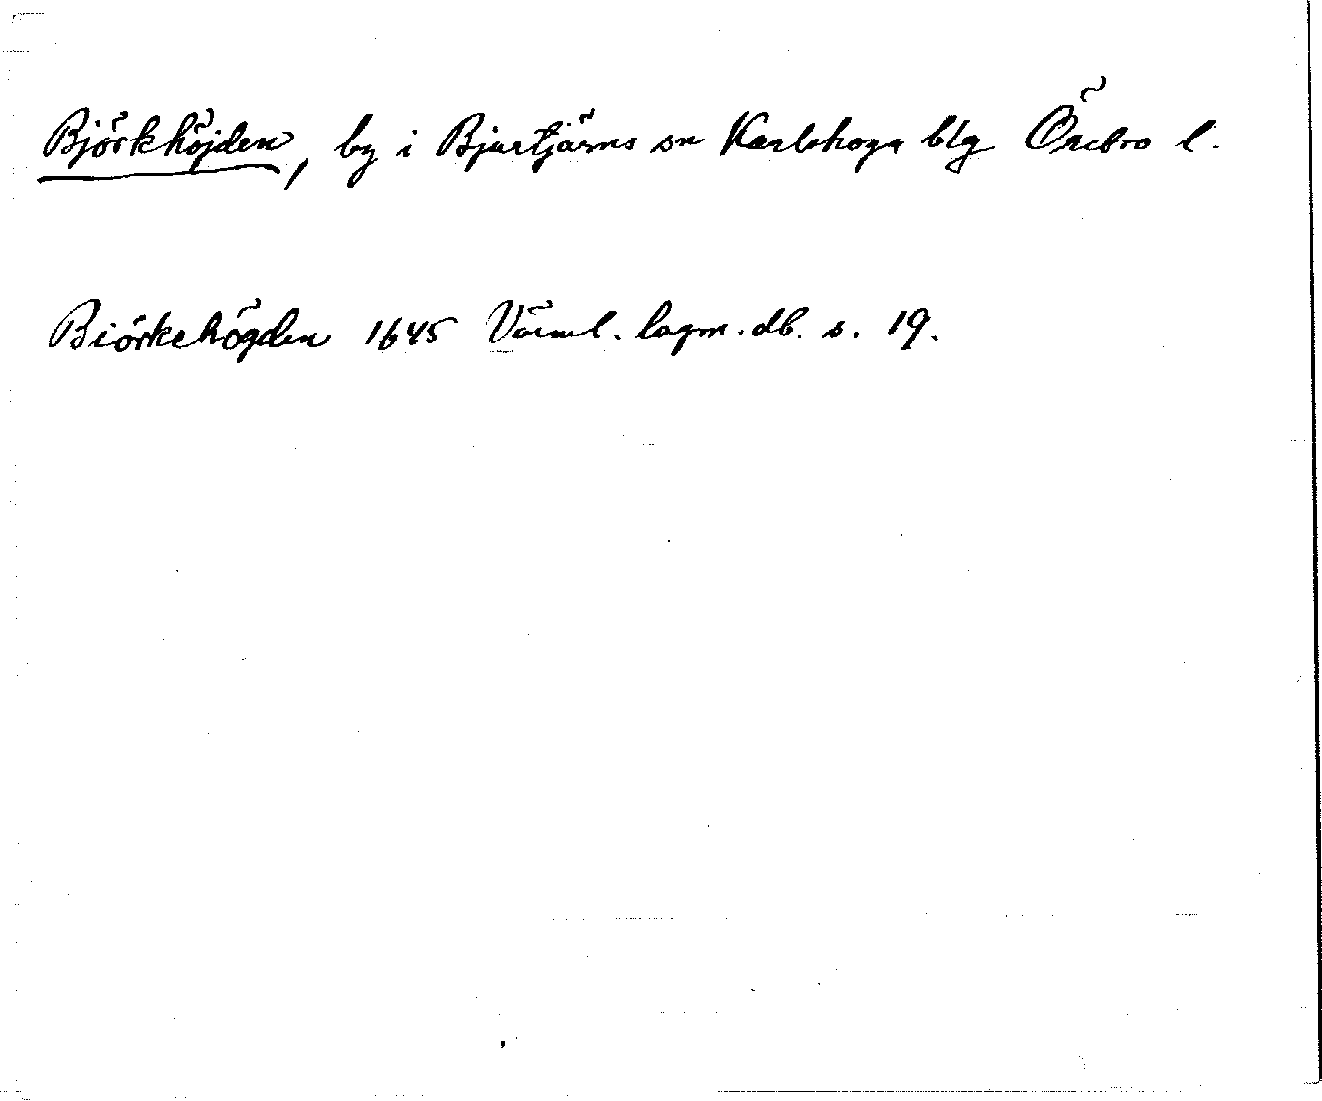 Björkhöjden, by i Bjurtjärns sn Karlskoga blg Örebro l.
Biörkehögden 1645 Värml. lagm. db. s. 19.